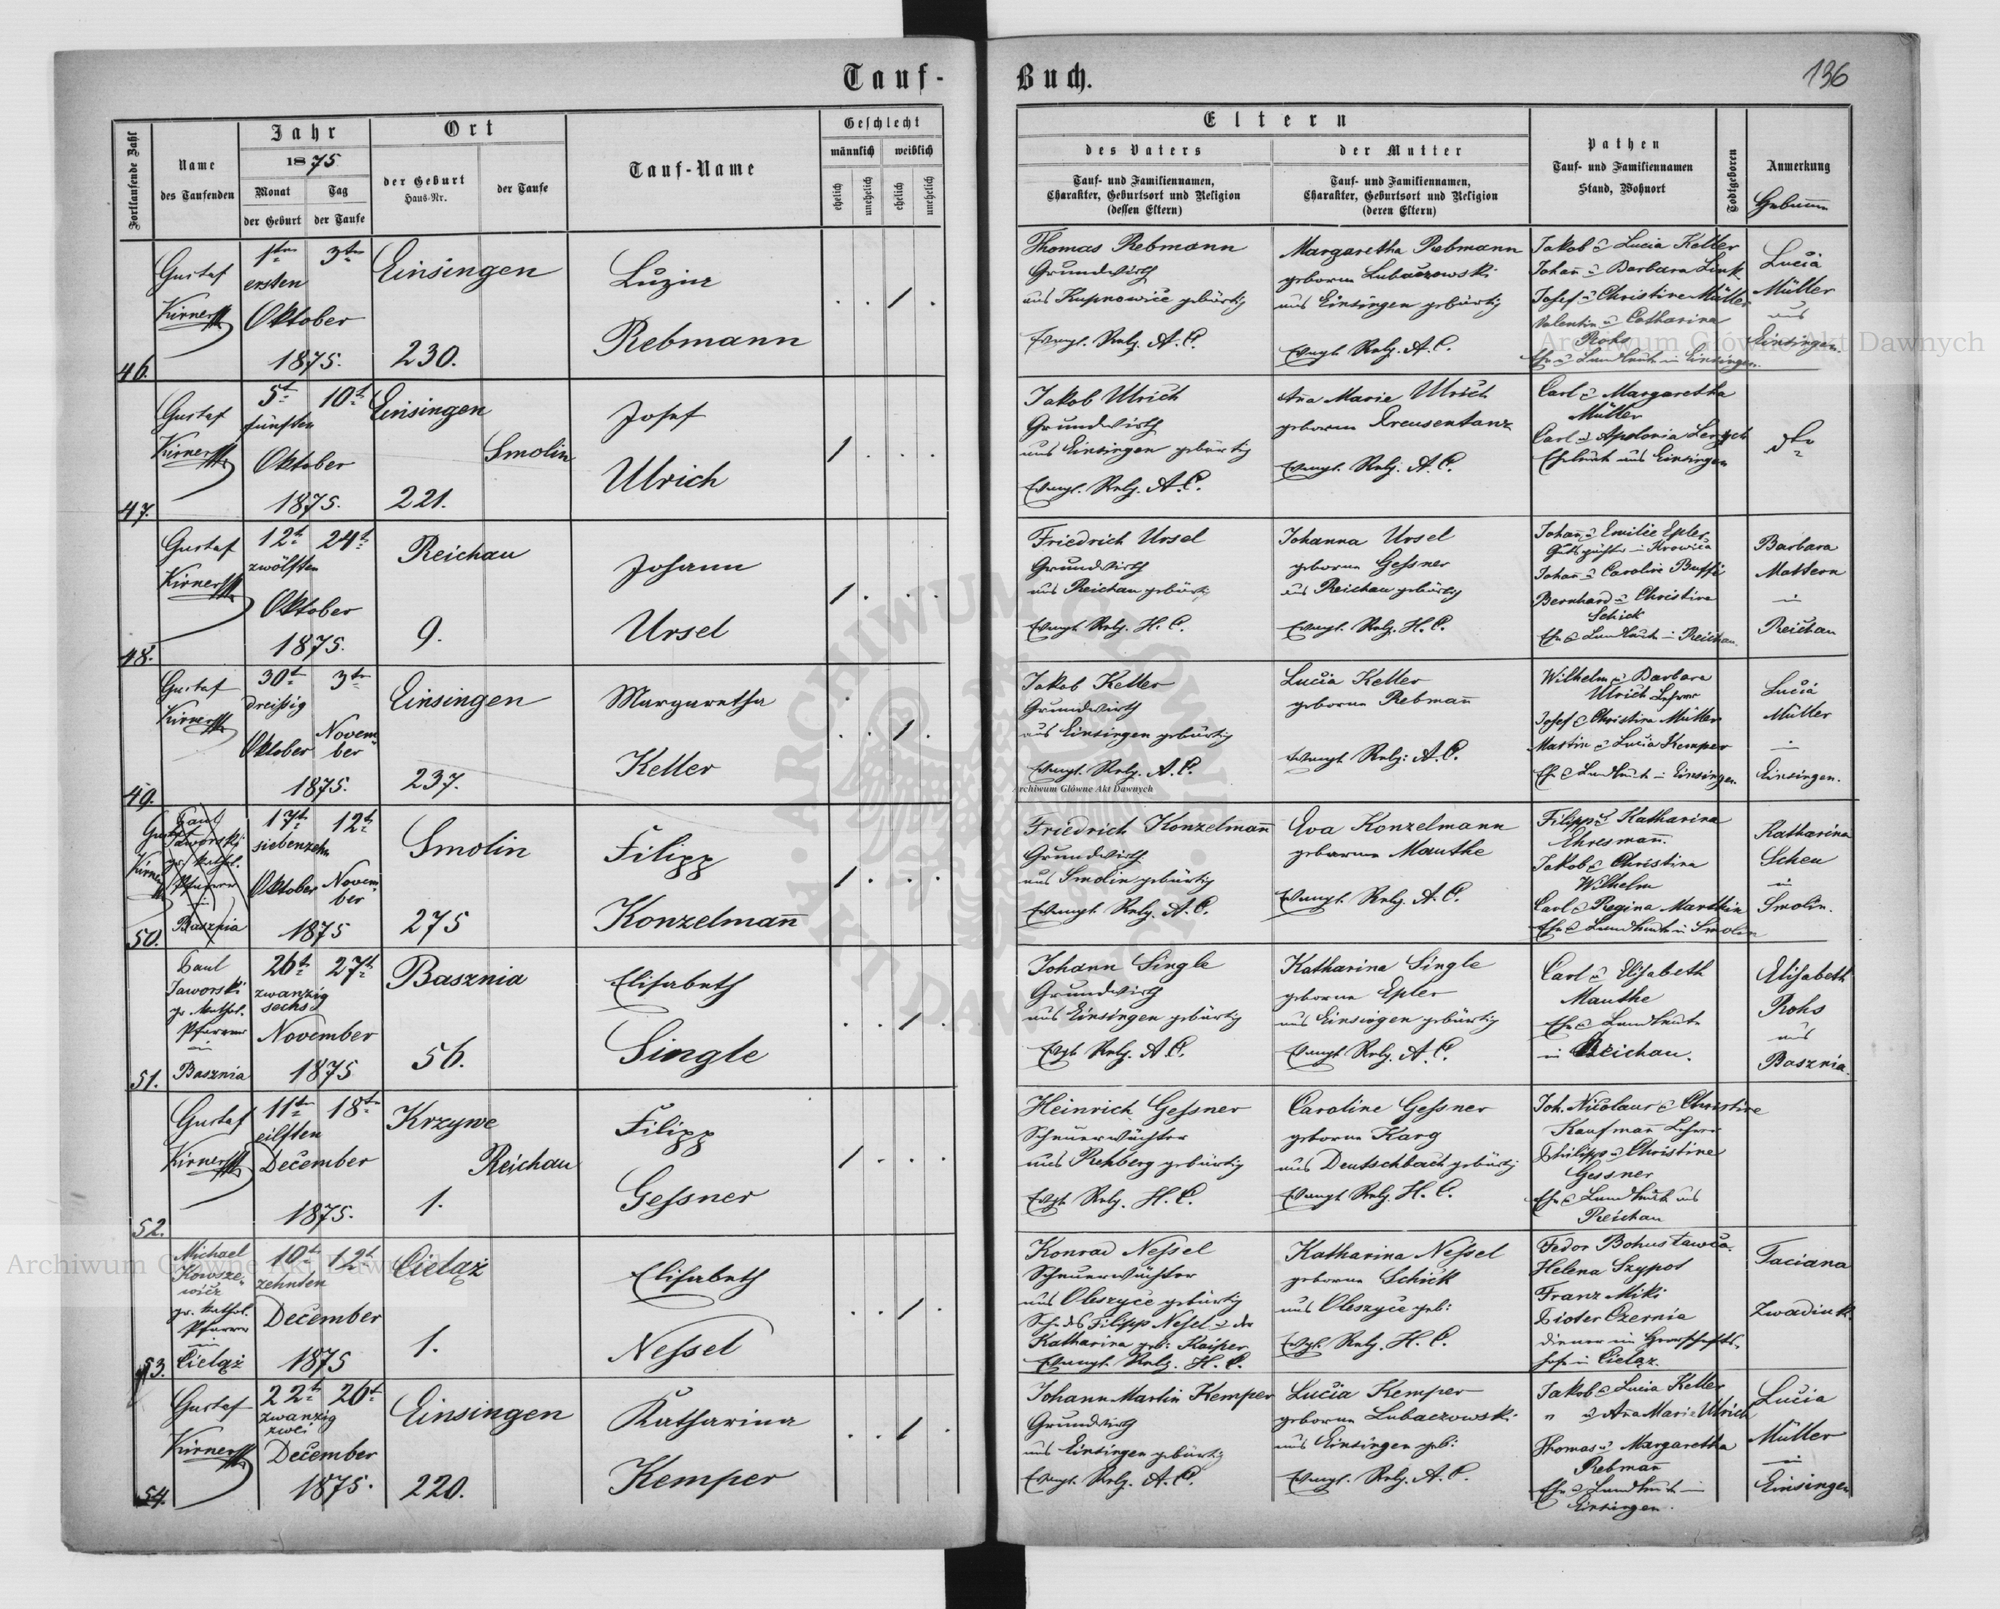 Tauf-
Buch.
136
Fortlaufende Zahl
Name
des Taufenden
Jahr
1875
Monat
der Geburt
Tag
der Taufe
Ort
der Geburt
Haus-Nr.
der Taufe
Tauf-Name
Geschlecht
männlich
weiblich
ehelich
unehelich
ehelich
unehelich
Eltern
des Vaters
Tauf- und Familiennamen,
Charakter, Geburtsort und Religion
(dessen Eltern)
der Mutter
Tauf- und Familiennamen,
Charakter, Geburtsort und Religion
(deren Eltern)
Pathen
Tauf- und Familiennamen
Stand, Wohnort
Todtgeboren
Anmerkung
46.
Gustaf
1ten 3ten
ersten
Oktober
1875.
Einsingen
230.
Luzia
Rebmann
Thomas Rebmann
Grundwirth
aus Kupnowice gebürtig
Evangl. Relg. A. C.
Margaretha Rebmann
geborne Lubaczowski
aus Einsingen gebürtig
Evngl. Relg. A. C.
Jakob & Lucia Keller
Johañ & Barbara Link
Josef & Christine Müller
Valentin & Catharina
Rohs
Ehe & Landleute in Einsingen.
Lucia
Müller
aus
Einsingen.
47.
Gustaf
5t 10t
fünften
Oktober
1875.
Einsingen
Smolin
221.
Josef
Ulrich
Jakob Ulrich
Grundwirth
aus Einsingen gebürtig
Evangl. Relg. A. C.
Aña Marie Ulrich
geborne Kreusentanz
Evangl. Relg. A. C.
Carl & Margaretha
Müller
Carl & Apolonia
Eheleute aus Einsingen
48.
Gustaf
12t 24t
zwölften
Oktober
1875.
Reichau
9.
Johann
Ursel
Friedrich Ursel
Grundwirth
aus Reichau gebürtig
Evangl. Relg. H. C.
Johanna Ursel
geborne Gessner
aus Reichau gebürtig
Evangl. Relg. H. C.
Johañ & Emilie Epler
in Krowica
Johañ & Caroline
Bernhard & Christine
Schick
Ehe & Landleute in Reichau.
Barbara
Mattern
in
Reichau
49.
Gustaf
30t 3ten
dreißig
Oktober Novem-
ber
1875.
Einsingen
237.
Margaretha
Keller
Jakob Keller
Grundwirth
aus Einsingen gebürtig
Evangl. Relg. A. C.
Lucia Keller
geborne Rebmañ
Evangl. Relg. A. C.
Wilhelm & Barbara
Ulrich Lehrer
Josef & Christine Müller
Martin & Lucia Kemper
Ehe & Landleute in Einsingen.
Lucia
Müller
in
Einsingen.
50.
Paul
Jaworski
gr. kathol.
Pfarrer
in
Basznia
Gustaf
17ten 12t
siebenzehn
Oktober Novem-
ber
1875
Smolin
275
Filipp
Konzelmañ
Friedrich Konzelmañ
Grundwirth
aus Smolin gebürtig
Evangl. Relg. A. C.
Eva Konzelmann
geborne Manthe
Evangl. Relg. A. C.
Filipp & Katharina
Ehresmañ.
Jakob & Christina
Wilhelm
Carl & Regina
Ehe & Landleute in Smolin
Katharina
Scheu
in
Smolin.
51.
Paul
Jaworski
gr. kathol.
Pfarrer
in
Basznia
26t 27t
zwanzig
sechs
November
1875
Basznia
56.
Elisabeth
Single
Johann Single
Grundwirth
aus Einsingen gebürtig
Evgl. Relg. A. C.
Katharina Single
geborne Epler
aus Einsingen gebürtig
Evangl. Relg. A. C.
Carl & Elisabeth
Manthe
Ehe & Landleute
in Reichau.
Elisabeth
Rohs
aus
Basznia.
52.
Gustaf
11ten 18ten
eilften
December
1875.
Krzywe
Reichau
1.
Filipp
Gessner
Heinrich Gessner
Scheuerwächter
aus Rehberg gebürtig
Evgl. Relg. H. C.
Caroline Gessner
geborne Karg
aus Deutschbach gebürtig
Evangl. Relg. H. C.
Joh. Nicolaus & Christine
Kaufmañ Lehrer
Philipp & Christine
Gessner
Ehe & Landleute aus
Reichau
53.
Michael
Kowsze-
wicz
gr. kathol.
Pfarrer
in
Cieląż
10t 12t
zehnten
December
1875
Cieląż
1.
Elisabeth
Nessel
Konrad Nessel
Scheuerwächter
aus Oleszyce gebürtig
Sohn des Filipp Nesel & der
Katharina geb. Kaiper
Evangl. Relg. H. C.
Katharina Nessel
geborne Schick
aus Oleszyce geb.
Evgl. Relg. H. C.
Fedor
Helena Szypot
Franz Miki
Pioter Czernia
in Cieląż.
Taciana
54.
Gustaf
22t 26t
zwanzig
zwei
December
1875.
Einsingen
220.
Katharina
Kemper
Johann Martin Kemper
Grundwirth
aus Einsingen gebürtig
Evangl. Relg. A. C.
Lucia Kemper
geborne Lubaczowski
aus Einsingen geb.
Evangl. Relg. A. C.
Jakob & Lucia Keller
" & Aña Marie Ulrich
Thomas & Margaretha
Rebmañ
Ehe & Landleute in
Einsingen.
Lucia
Müller
in
Einsingen
Archiwum Główne Akt Dawnych
Archiwum Główne Akt Dawnych
Archiwum Główne Akt Dawnych
ARCHIWUM GŁÓWNE AKT DAWNYCH